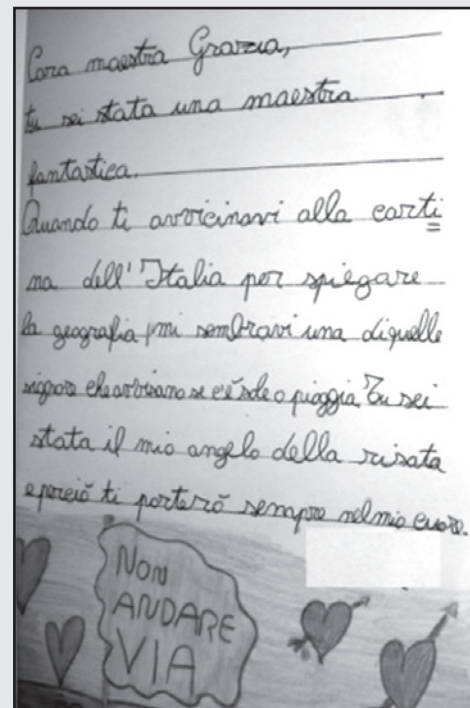 Cara maestra Grazia,
tu sei stata una maestra
fantastica.
Quando ti avvicinavi alla carti
na dell'Italia per spiegare
la geografia, mi sembravi una di quelle
signore che avvisano se c'è sole o pioggia. Tu sei
stata il mio angelo della risata
e perciò ti porterò sempre nel mio cuore.
NON
ANDARE
VIA